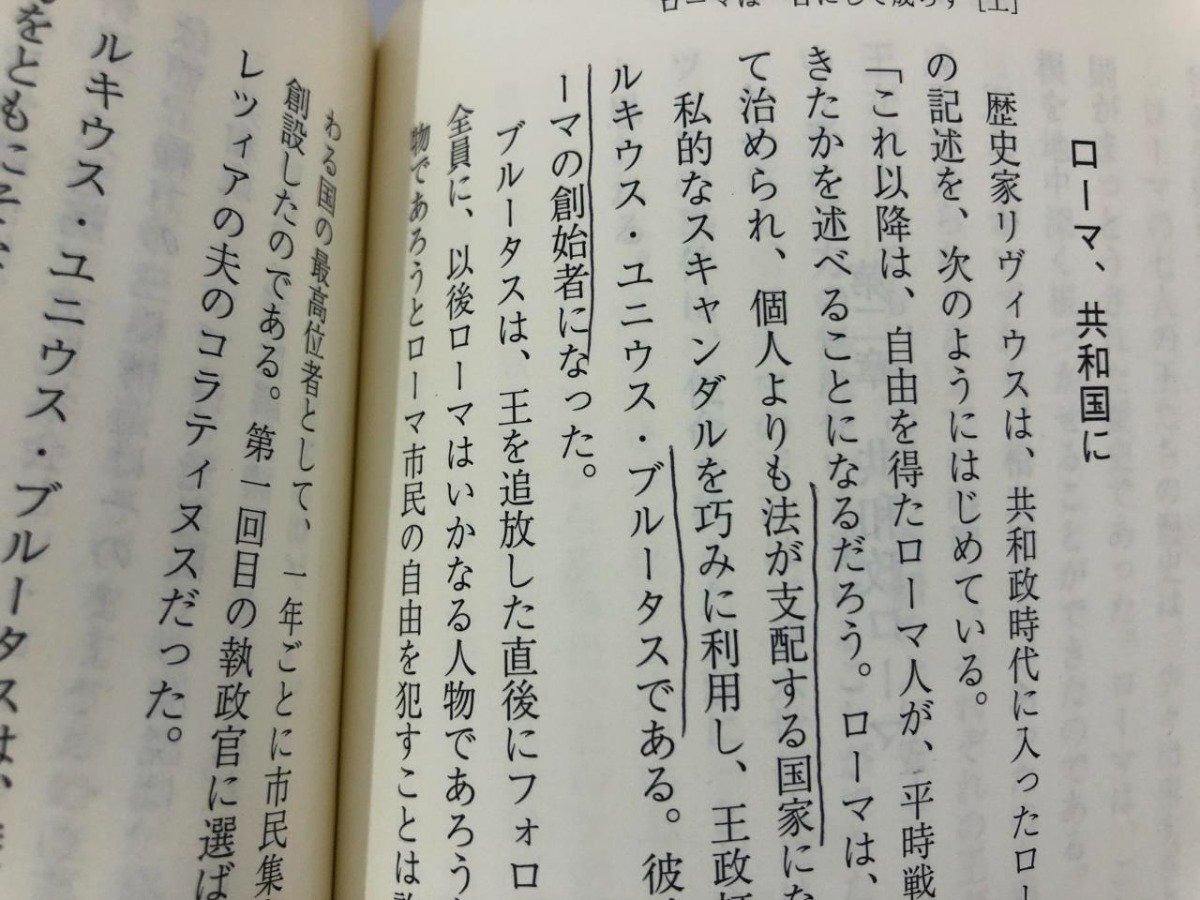 ローマは一日にして成らず［上］
ローマ、共和国に
歴史家リヴィウスは、共和政時代に入ったロー
の記述を、次のようにはじめている。
「これ以降は、自由を得たローマ人が、平時戦
きたかを述べることになるだろう。ローマは、
て治められ、個人よりも法が支配する国家にな
私的なスキャンダルを巧みに利用し、王政打
ルキウス・ユニウス・ブルータスである。彼
ーマの創始者になった。
ブルータスは、王を追放した直後にフォロ
全員に、以後ローマはいかなる人物であろう
物であろうとローマ市民の自由を犯すことは
わる国の最高位者として、一年ごとに市民集
創設したのである。第一回目の執政官に選ば
レツィアの夫のコラティヌスだった。
ルキウス・ユニウス・ブルータスは、
をともに